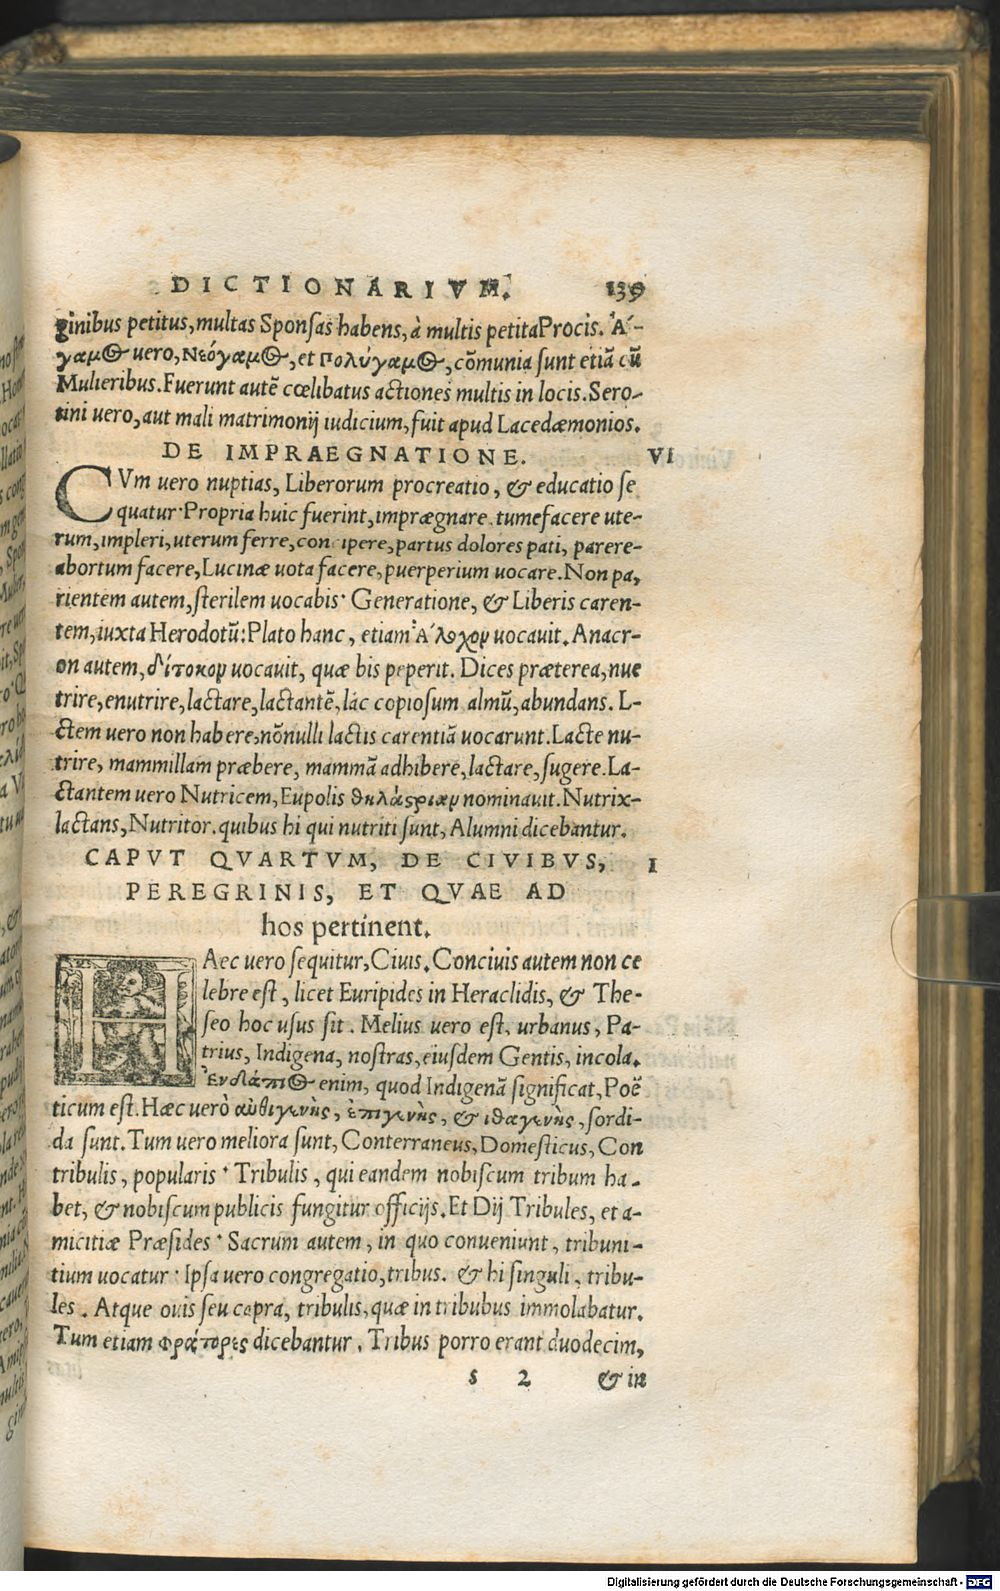 DICTIONARIVM. 139
ginibus petitus, multas Sponſas habens, à multis petita Procis. Ἄ-
γαμος uero, Νεόγαμος, et πολύγαμος, cõmunia ſunt etiã cũ
Mulieribus. Fuerunt autẽ cœlibatus actiones multis in locis. Sero-
tini uero, aut mali matrimonij iudicium, fuit apud Lacedæmonios.
DE IMPRAEGNATIONE. VI
CVm uero nuptias, Liberorum procreatio, & educatio ſe
quatur· Propria huic fuerint, imprægnare. tumefacere ute-
rum, impleri, uterum ferre, concipere, partus dolores pati, parere-
abortum facere, Lucinæ uota facere, puerperium uocare. Non pa,
rientem autem, ſterilem uocabis· Generatione, & Liberis caren-
tem, iuxta Herodotũ: Plato hanc, etiam Ἄλοχον uocauit. Anacr-
on autem, δίτοκον uocauit, quæ bis peperit. Dices præterea, nue
trire, enutrire, lactare, lactantẽ, lac copioſum almũ, abundans. L-
ctem uero non habere, nõnulli lactis carentiã uocarunt. Lacte nu-
trire, mammillam præbere, mammã adhibere, lactare, ſugere. La-
ctantem uero Nutricem, Eupolis θηλάστριαν nominauit. Nutrix-
lactans, Nutritor. quibus hi qui nutriti ſunt, Alumni dicebantur.
CAPVT QVARTVM, DE CIVIBVS, I
PEREGRINIS, ET QVAE AD
hos pertinent.
HAec uero ſequitur, Ciuis. Conciuis autem non ce
lebre eſt, licet Euripides in Heraclidis, & The-
ſeo hoc uſus ſit. Melius uero eſt, urbanus, Pa-
trius, Indigena, noſtras, eiuſdem Gentis, incola.
Ἐνδάπιος enim, quod Indigenã ſignificat, Poë
ticum eſt. Hæc uerò αὐθιγενὴς, ἐπιγενὴς, & ιθαγενὴς, ſordi-
da ſunt. Tum uero meliora ſunt, Conterraneus, Domeſticus, Con
tribulis, popularis· Tribulis, qui eandem nobiſcum tribum ha-
bet, & nobiſcum publicis fungitur officijs. Et Dij Tribules, et a-
micitiæ Præſides· Sacrum autem, in quo conueniunt, tribuni-
tium uocatur· Ipſa uero congregatio, tribus. & hi ſinguli, tribu-
les. Atque ouis ſeu capra, tribulis, quæ in tribubus immolabatur.
Tum etiam φράτορες dicebantur. Tribus porro erant duodecim,
s 2 & in
Digitalisierung gefördert durch die Deutsche Forschungsgemeinschaft - DFG